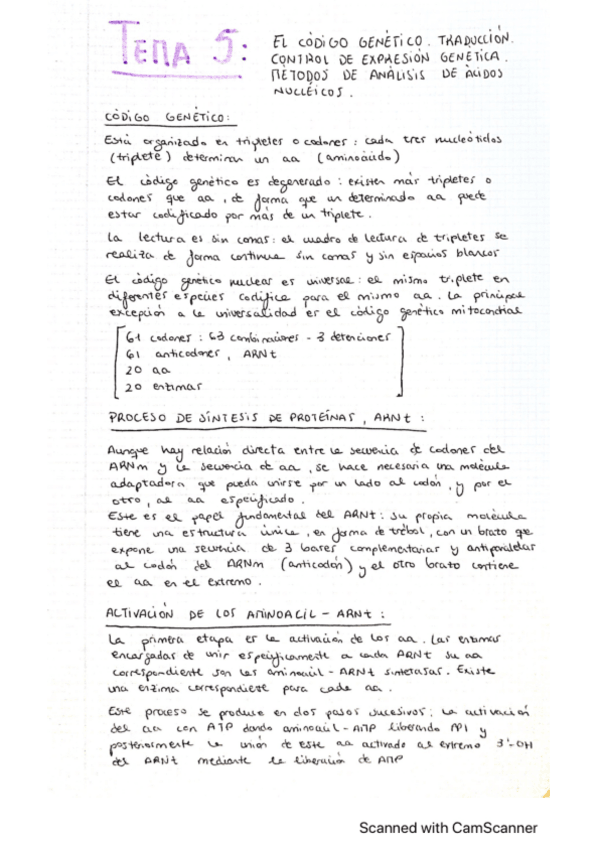 TEMA 5:
EL CÓDIGO GENÉTICO. TRADUCCIÓN.
CONTROL DE EXPRESIÓN GENÉTICA.
MÉTODOS DE ANÁLISIS DE ÁCIDOS
NUCLÉICOS.
CÓDIGO GENÉTICO:
Está organizado en tripletes o codones: cada tres nucleótidos
(triplete) determinan un aa (aminoácido)
El código genético es degenerado: existen más tripletes o
codones que aa, de forma que un determinado aa puede
estar codificado por más de un triplete.
La lectura es sin comas: el cuadro de lectura de tripletes se
realiza de forma continua sin comas y sin espacios blancos
El código genético nuclear es universal: el mismo triplete en
diferentes especies codifica para el mismo aa. La principal
excepción a la universalidad es el código genético mitocondrial
61 codones: 63 combinaciones - 3 detenciones
61 anticodones, ARNt
20 aa
20 enzimas
PROCESO DE SÍNTESIS DE PROTEÍNAS, ARNt:
Aunque hay relación directa entre la secuencia de codones del
ARNm y la secuencia de aa, se hace necesaria una molécula
adaptadora que pueda unirse por un lado al codón, y por el
otro, al aa especificado.
Este es el papel fundamental del ARNt: su propia molécula
tiene una estructura única, en forma de trébol, con un brazo que
expone una secuencia de 3 bases complementarias y antiparalelas
al codón del ARNm (anticodón) y el otro brazo contiene
el aa en el extremo.
ACTIVACIÓN DE LOS AMINOACIL-ARNt:
La primera etapa es la activación de los aa. Las enzimas
encargadas de unir específicamente a cada ARNt su aa
correspondiente son las aminoacil-ARNt sintetasas. Existe
una enzima correspondiente para cada aa.
Este proceso se produce en dos pasos sucesivos: la activación
del aa con ATP dando aminoacil-AMP liberando PPi y
posteriormente la unión de este aa activado al extremo 3'-OH
del ARNt mediante la liberación de AMP
Scanned with CamScanner